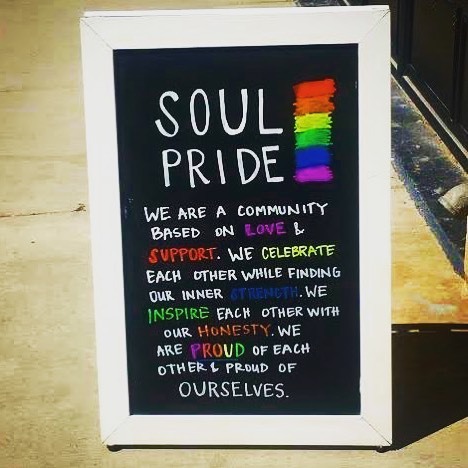 SOUL
PRIDE
WE ARE A COMMUNITY
BASED ON LOVE &
SUPPORT. WE CELEBRATE
EACH OTHER WHILE FINDING
OUR INNER STRENGTH. WE
INSPIRE EACH OTHER WITH
OUR HONESTY. WE
ARE PROUD OF EACH
OTHER & PROUD OF
OURSELVES.